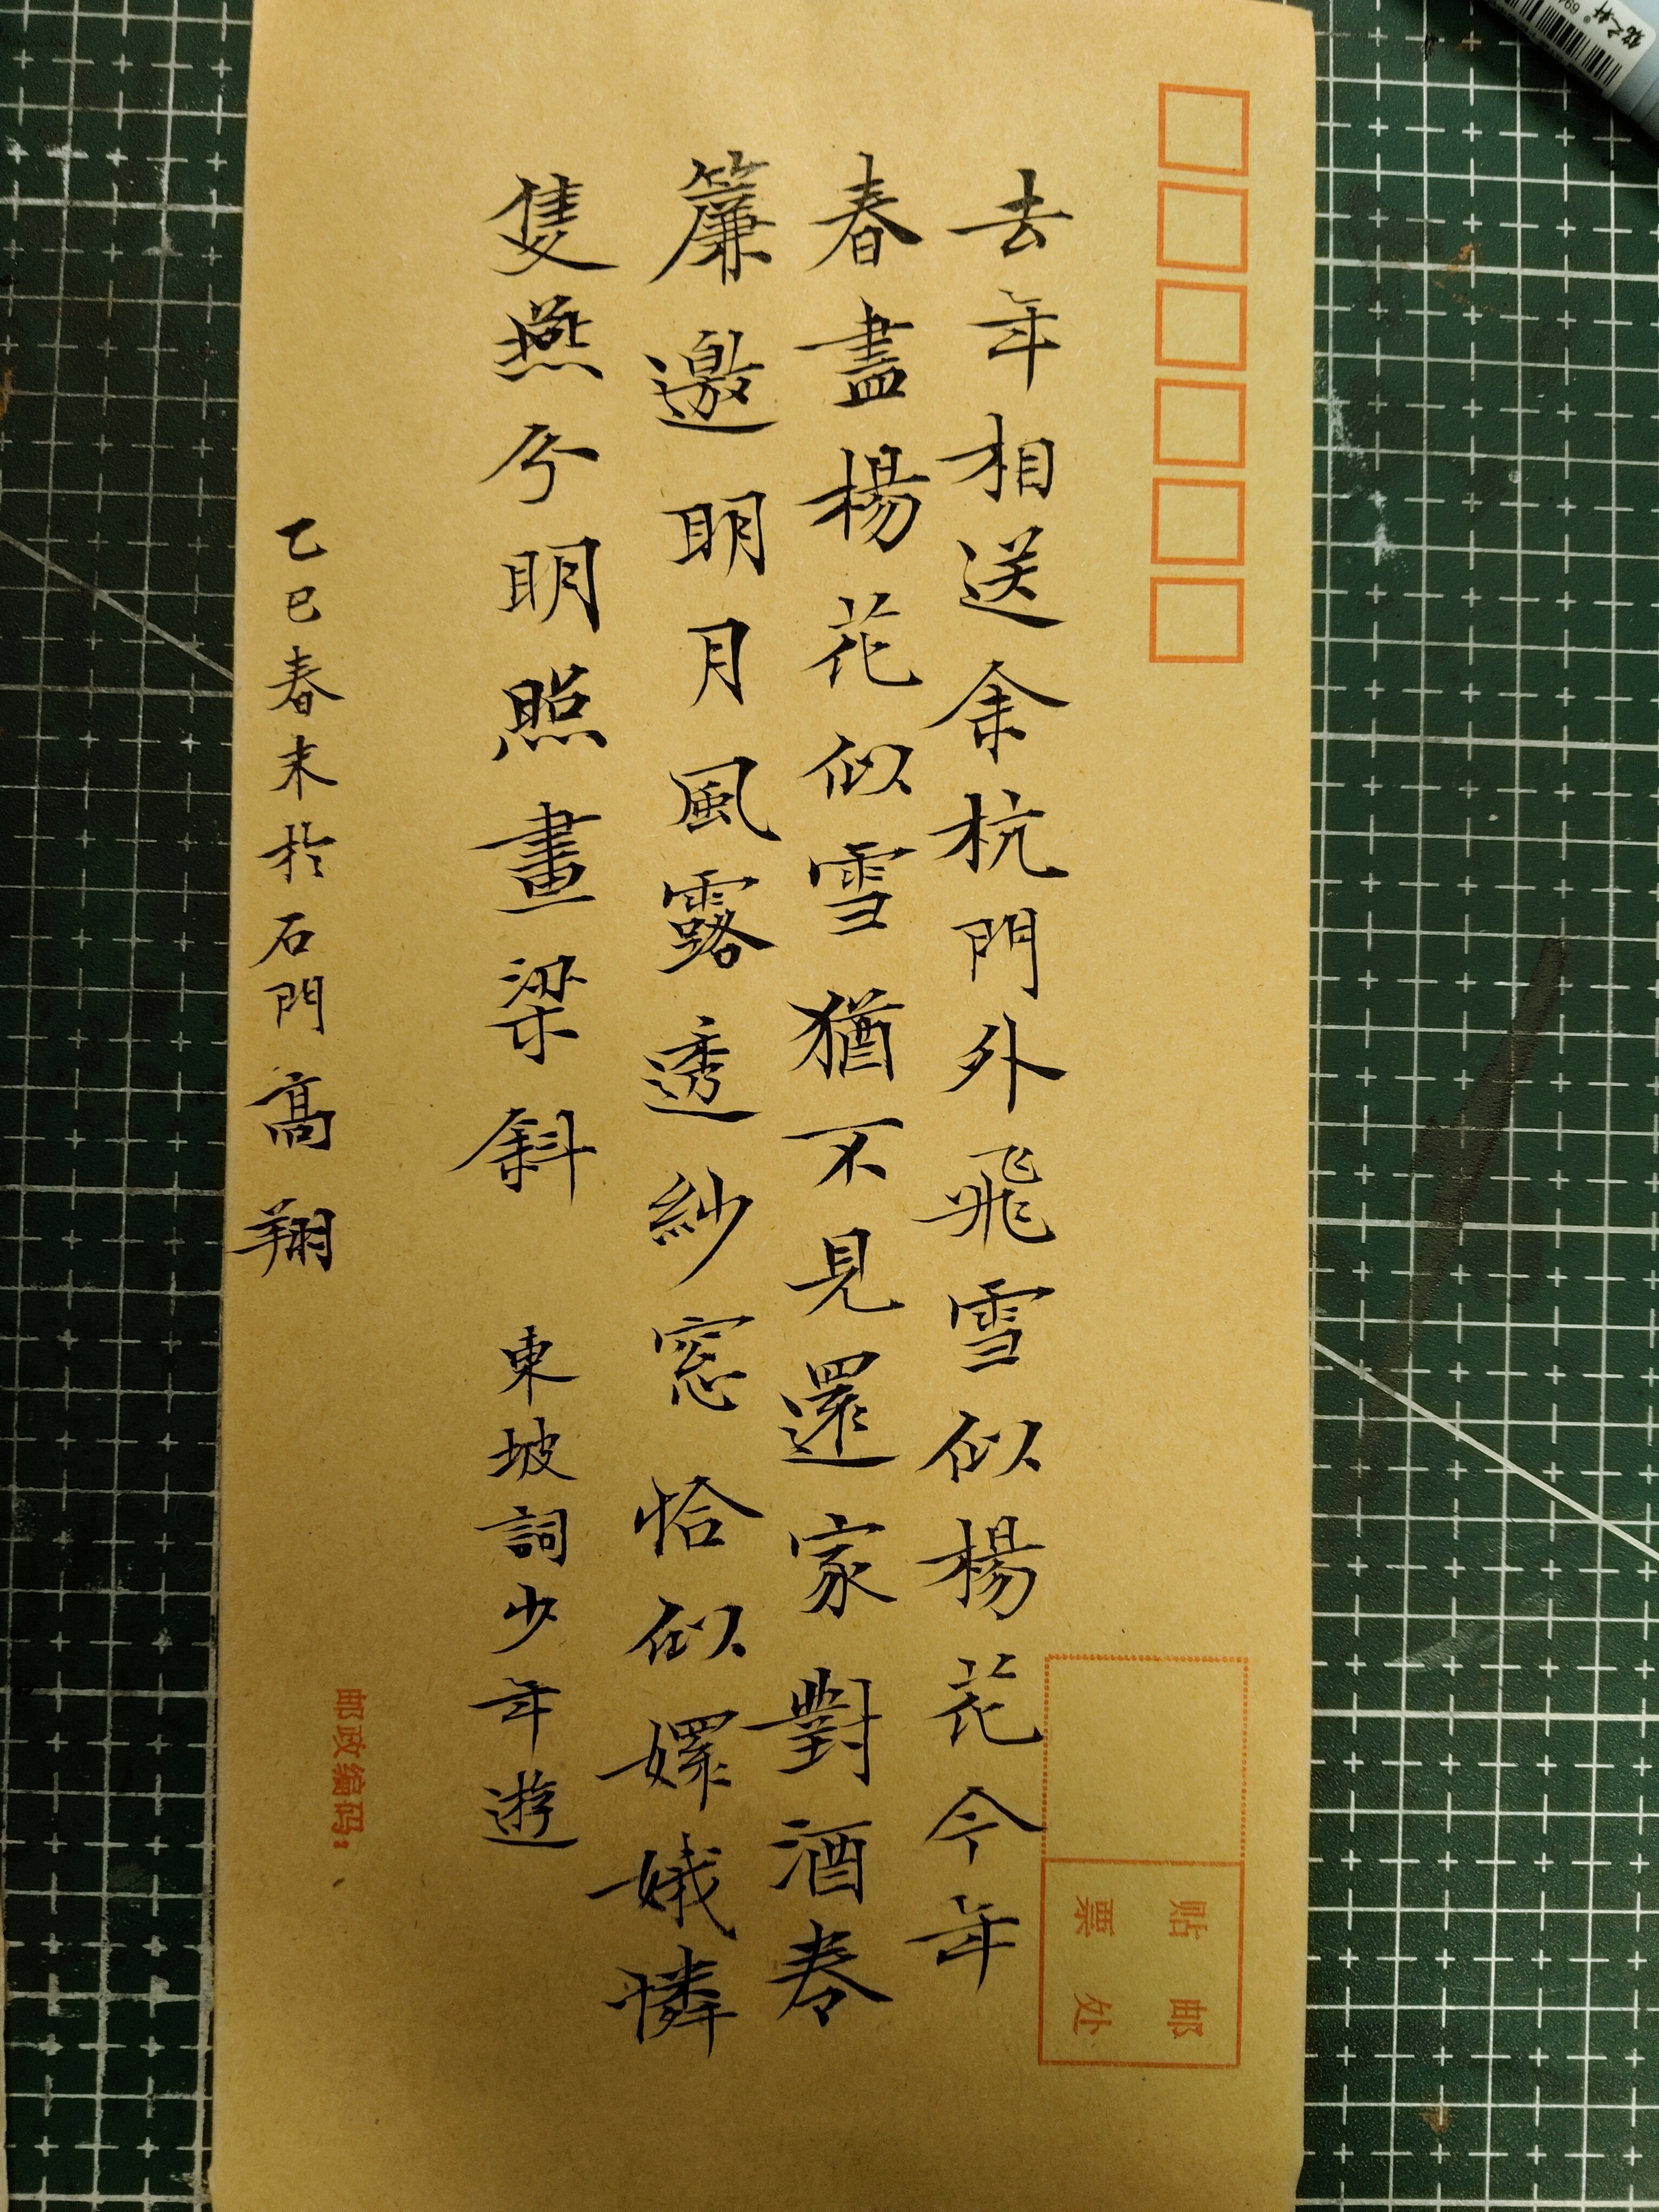 贴邮
票处
去年相送余杭門外飛雪似楊花今年
春盡楊花似雪猶不見還家對酒卷
簾邀明月風露透紗窓恰似嬕娥憐
隻燕兮明照畫梁斜 東坡詞少年遊
乙巳春末於石門高翔
邮政编码：